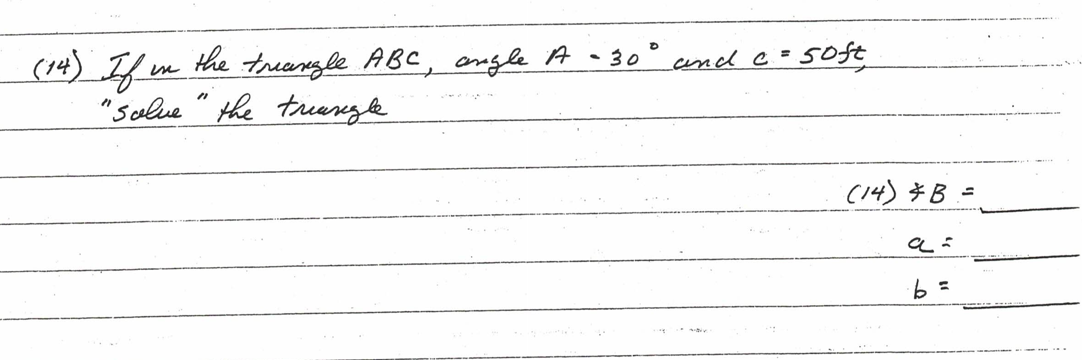 (14) If in the triangle ABC, angle A = 30° and c = 50ft,
"solve" the triangle
(14) ∡B =
a =
b =